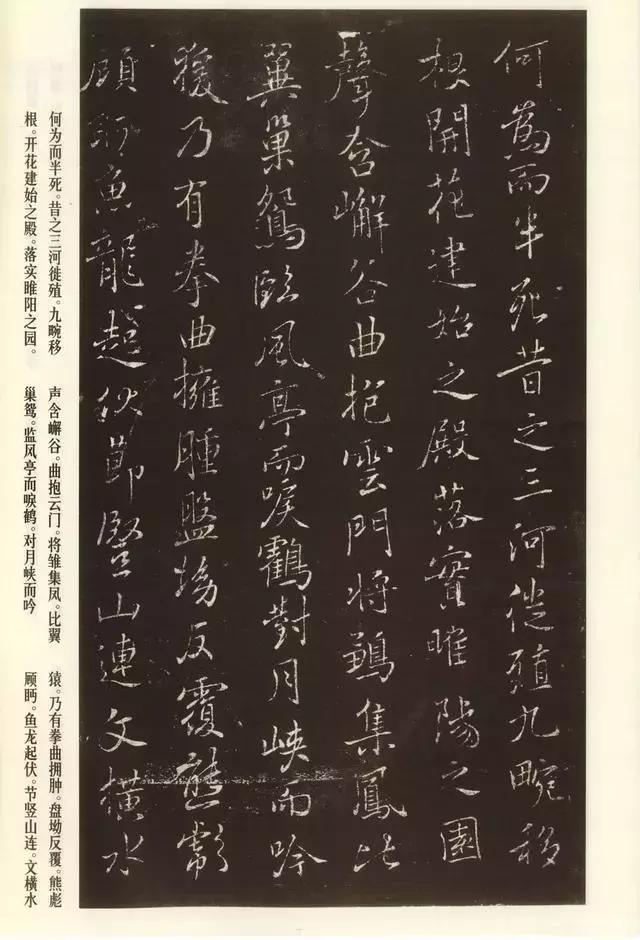 何為而半死昔之三河徙殖九畹移
根開花建始之殿落實睢陽之園
聲含嶰谷曲抱雲門將鶵集鳳比
翼巢鴛臨風亭而唳鶴對月峽而吟
猨乃有拳曲擁腫盤坳反覆熊彪
顧盻魚龍起伏節豎山連文橫水
何为而半死。昔之三河徙殖。九畹移
根。开花建始之殿。落实睢阳之园。
声含嶰谷。曲抱云门。将雏集凤。比翼
巢鸳。监风亭而唳鹤。对月峡而吟
猿。乃有拳曲拥肿。盘坳反覆。熊彪
顾眄。鱼龙起伏。节竖山连。文横水